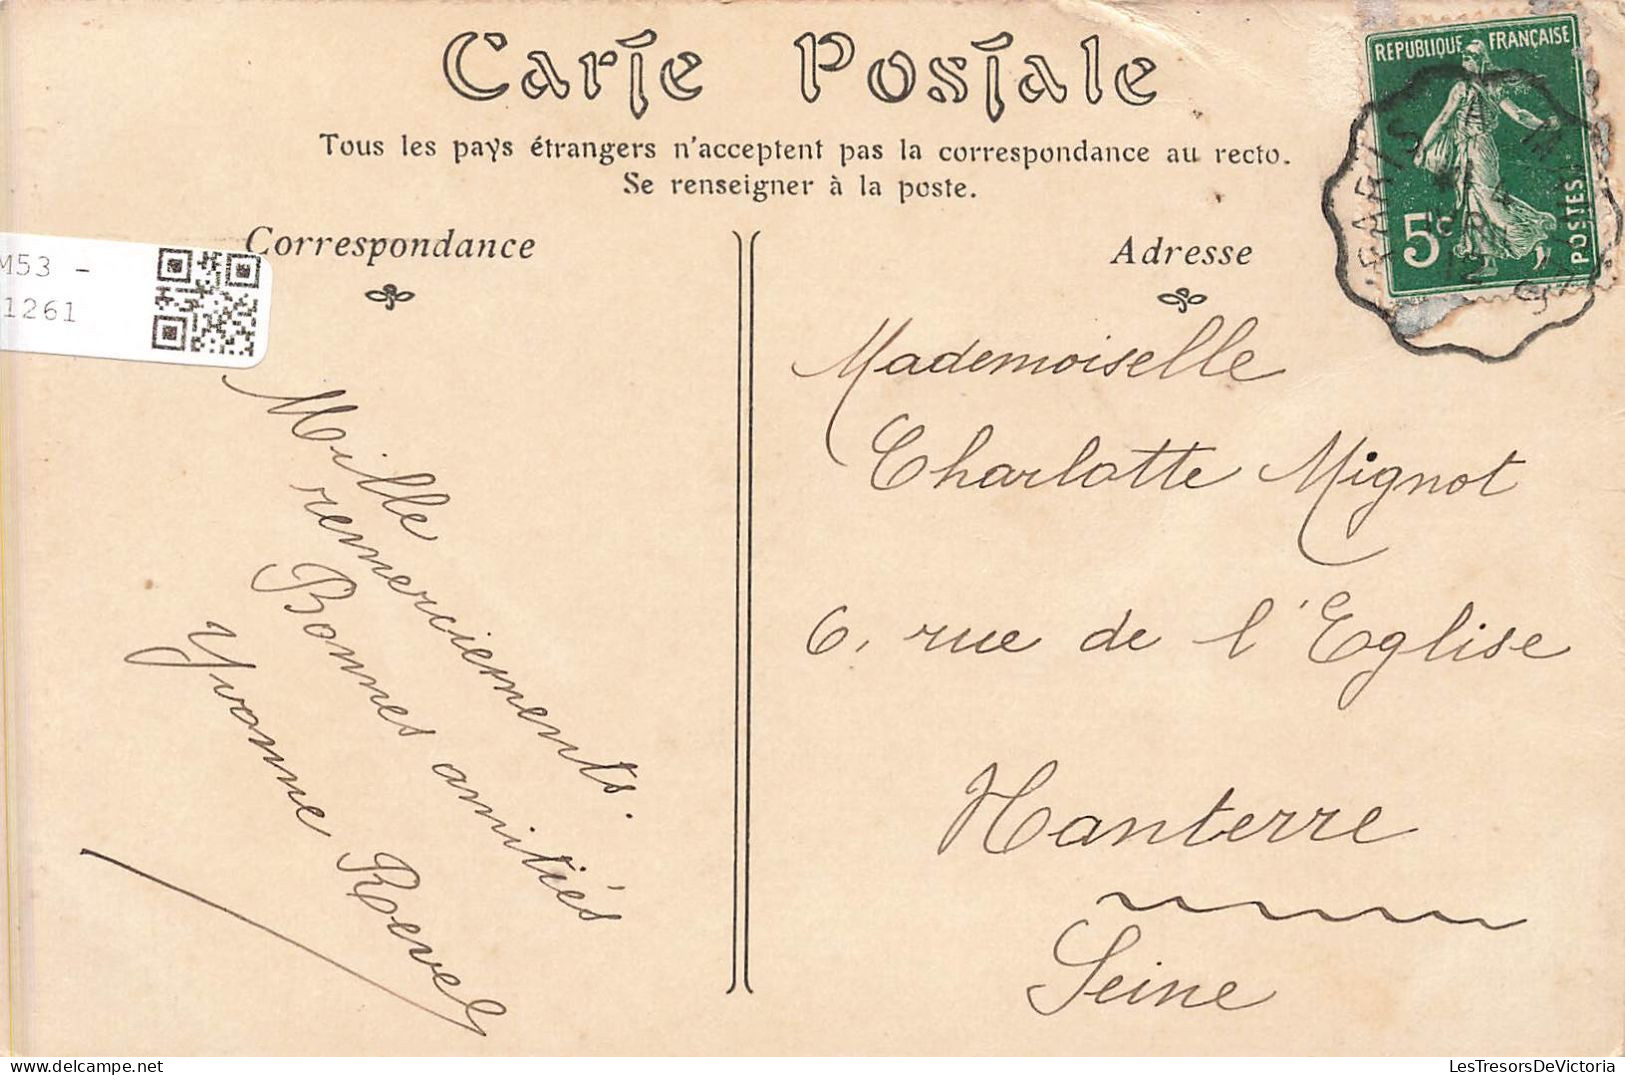 Carte Postale
Tous les pays étrangers n'acceptent pas la correspondance au recto.
Se renseigner à la poste.
REPUBLIQUE FRANÇAISE
POSTES
5c
PARIS
M53 -
1261
Correspondance
Mille
remerciements.
Bonnes amitiés
Yvonne Revel
Adresse
Mademoiselle
Charlotte Mignot
6, rue de l'Eglise
Nanterre
Seine
LesTresorsDeVictoria